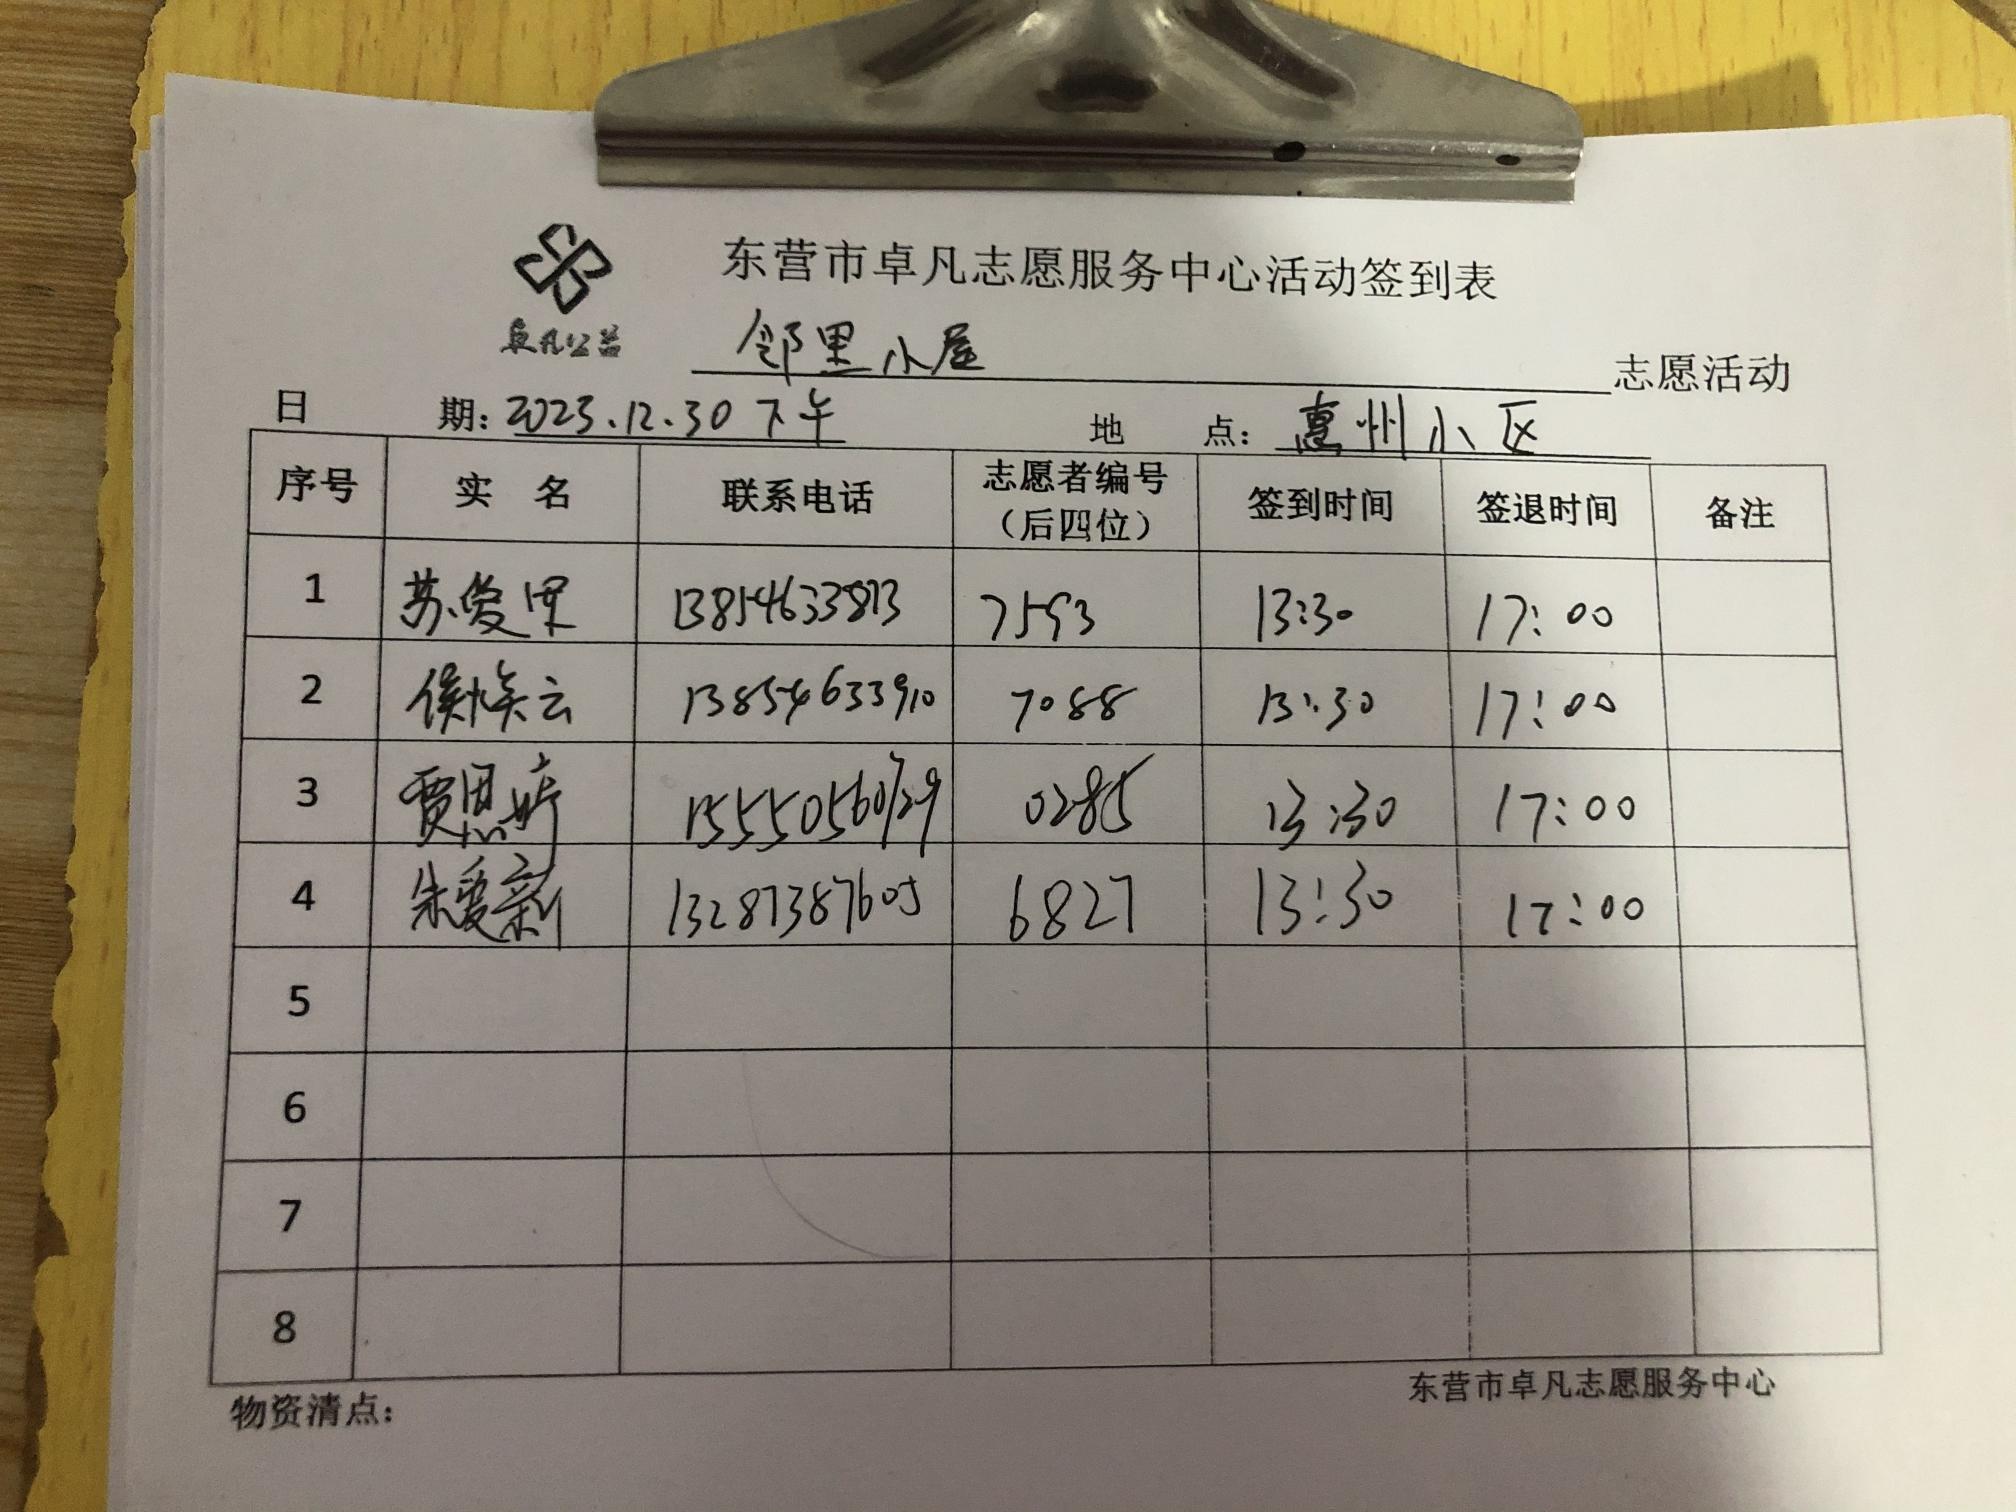 东营市卓凡志愿服务中心活动签到表
卓凡公益
邻里小屋 志愿活动
日 期: 2023.12.30 下午 地 点: 惠州小区
序号 实 名 联系电话 志愿者编号（后四位） 签到时间 签退时间 备注
1 苏爱果 13854633813 7593 13:30 17:00
2 侯焕云 13854633910 7088 13:30 17:00
3 贾恩婷 15550560729 0285 13:30 17:00
4 朱爱新 13287387605 6827 13:30 17:00
5
6
7
8
物资清点: 东营市卓凡志愿服务中心